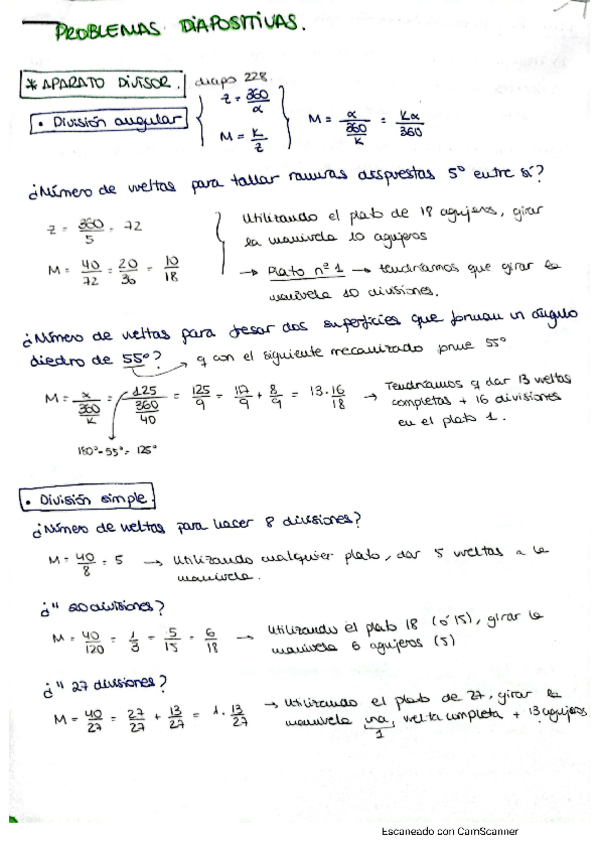 PROBLEMAS DIAPOSITIVAS.
* APARATO DIVISOR. diapo 228.
• División angular
z = 360/α
M = K/z
M = α/(360/K) = Kα/360
¿Número de vueltas para tallar ranuras dispuestas 5º entre sí?
z = 360/5 = 72
M = 40/72 = 20/36 = 10/18
Utilizando el plato de 18 agujeros, girar
la manivela 10 agujeros
→ Plato nº 1 → tendríamos que girar la
manivela 10 divisiones.
¿Número de vueltas para fresar dos superficies que forman un ángulo
diedro de 55º? → q con el siguiente mecanizado 55º
M = α/(360/K) = 125/(360/40) = 125/9 = 117/9 + 8/9 = 13·16/18
180º-55º = 125º
→ Tendríamos q dar 13 vueltas
completas + 16 divisiones
en el plato 1.
• División simple.
¿Número de vueltas para hacer 8 divisiones?
M = 40/8 = 5 → Utilizando cualquier plato, dar 5 vueltas a la
manivela.
¿" divisiones?
M = 40/120 = 1/3 = 5/15 = 6/18 → Utilizando el plato 18 (ó 15), girar la
manivela 6 agujeros (5)
¿" 27 divisiones?
M = 40/27 = 27/27 + 13/27 = 1·13/27 → Utilizando el plato de 27, girar la
manivela una vuelta completa + 13 agujeros
1
Escaneado con CamScanner